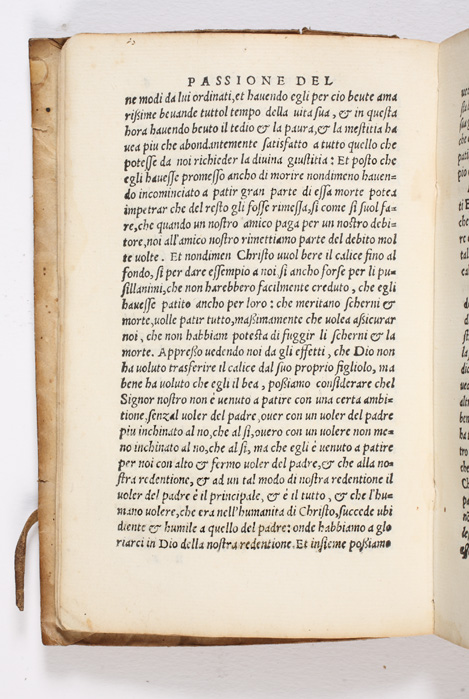 PASSIONE DEL
ne modi da lui ordinati, et havendo egli per cio beute ama
rißime bevande tuttol tempo della vita sua, & in questa
hora havendo beuto il tedio & la paura, & la mestitia ha
vea piu che abondantemente satisfatto a tutto quello che
potesse da noi richieder la divina giustitia: Et posto che
egli havesse promesso ancho di morire nondimeno haven-
do incominciato a patir gran parte di essa morte potea
impetrar che del resto gli fosse rimessa, si come si suol fa-
re, che quando un nostro amico paga per un nostro debi-
tore, noi all'amico nostro rimettiamo parte del debito mol
te volte. Et nondimen Christo vuol bere il calice fino al
fondo, si per dare essempio a noi si ancho forse per li pu-
sillanimi, che non harebbero facilmente creduto, che egli
havesse patito ancho per loro: che meritano scherni &
morte, volle patir tutto, maßimamente che volea assicurar
noi, che non habbiam potesta di fuggir li scherni & la
morte. Appreßo vedendo noi da gli effetti, che Dio non
ha voluto trasferire il calice dal suo proprio figliolo, ma
bene ha voluto che egli il bea, poßiamo considerare chel
Signor nostro non è venuto a patire con una certa ambi-
tione, senzal voler del padre, over con un voler del padre
piu inchinato al no, che al si, overo con un volere non me-
no inchinato al no, che al si, ma che egli è venuto a patire
per noi con alto & fermo voler del padre, & che alla no-
stra redentione, & ad un tal modo di nostra redentione il
voler del padre è il principale, & è il tutto, & che l'hu-
mano volere, che era nell'humanita di Christo, succede ubi
diente & humile a quello del padre: onde habbiamo a glo
riarci in Dio della nostra redentione. Et insieme poßiamo